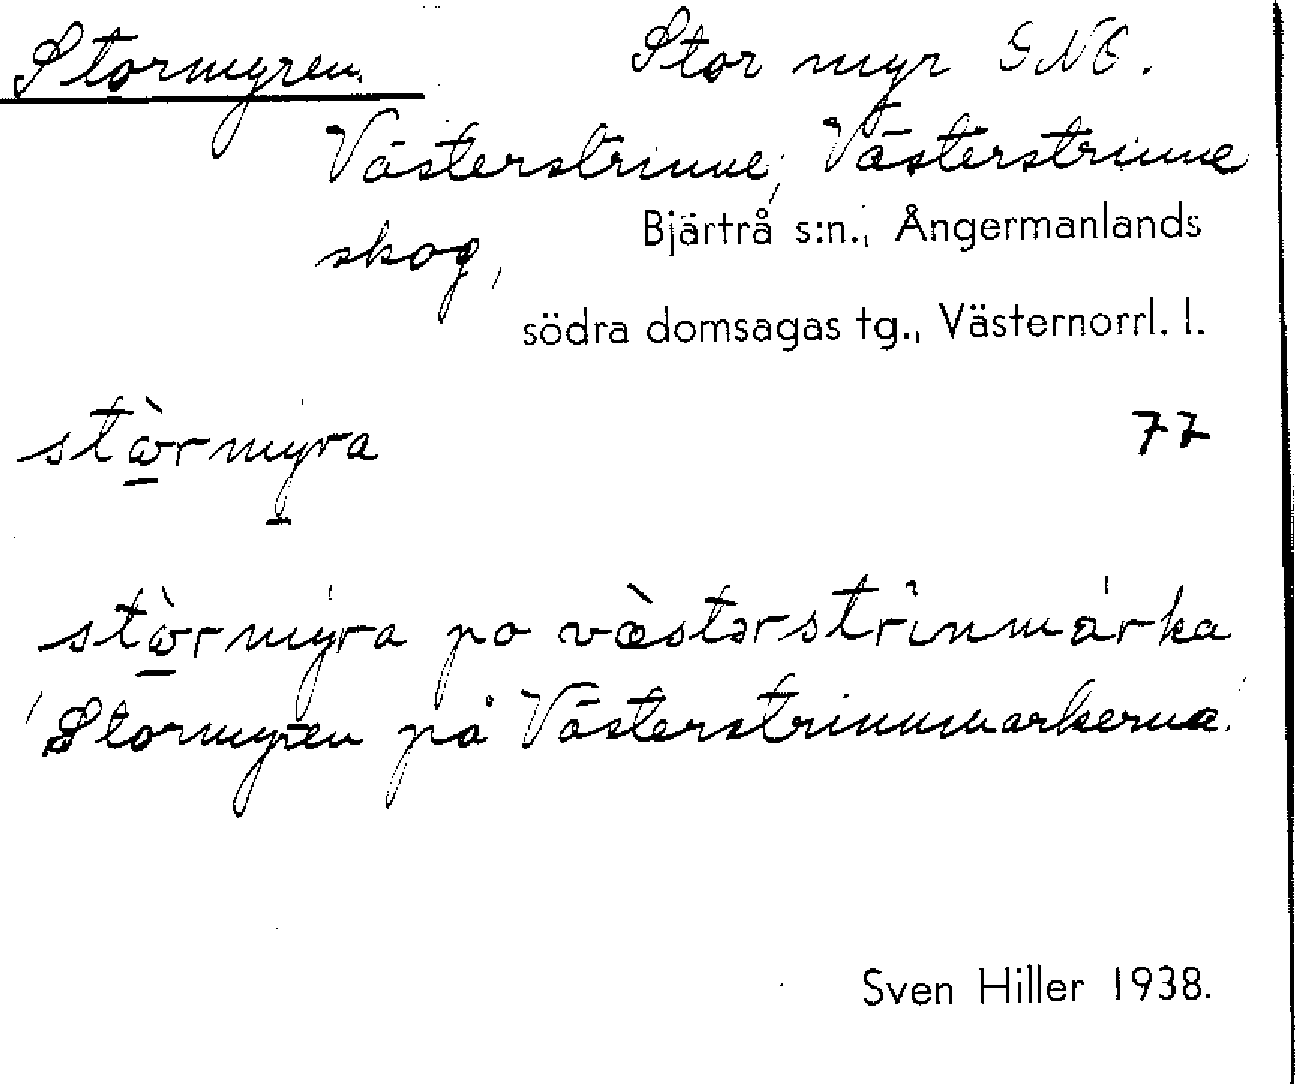 Stormyren. Stor myr SNE.
Västerstrinne, Västerstrinne
skog, Bjärtrå s:n., Ångermanlands
södra domsagas tg., Västernorrl. l.
stὼrmyra 77
stὼrmyra po væ̀stərstrinmárka
'Stormyren på Västerstrinnmarkerna.'
Sven Hiller 1938.